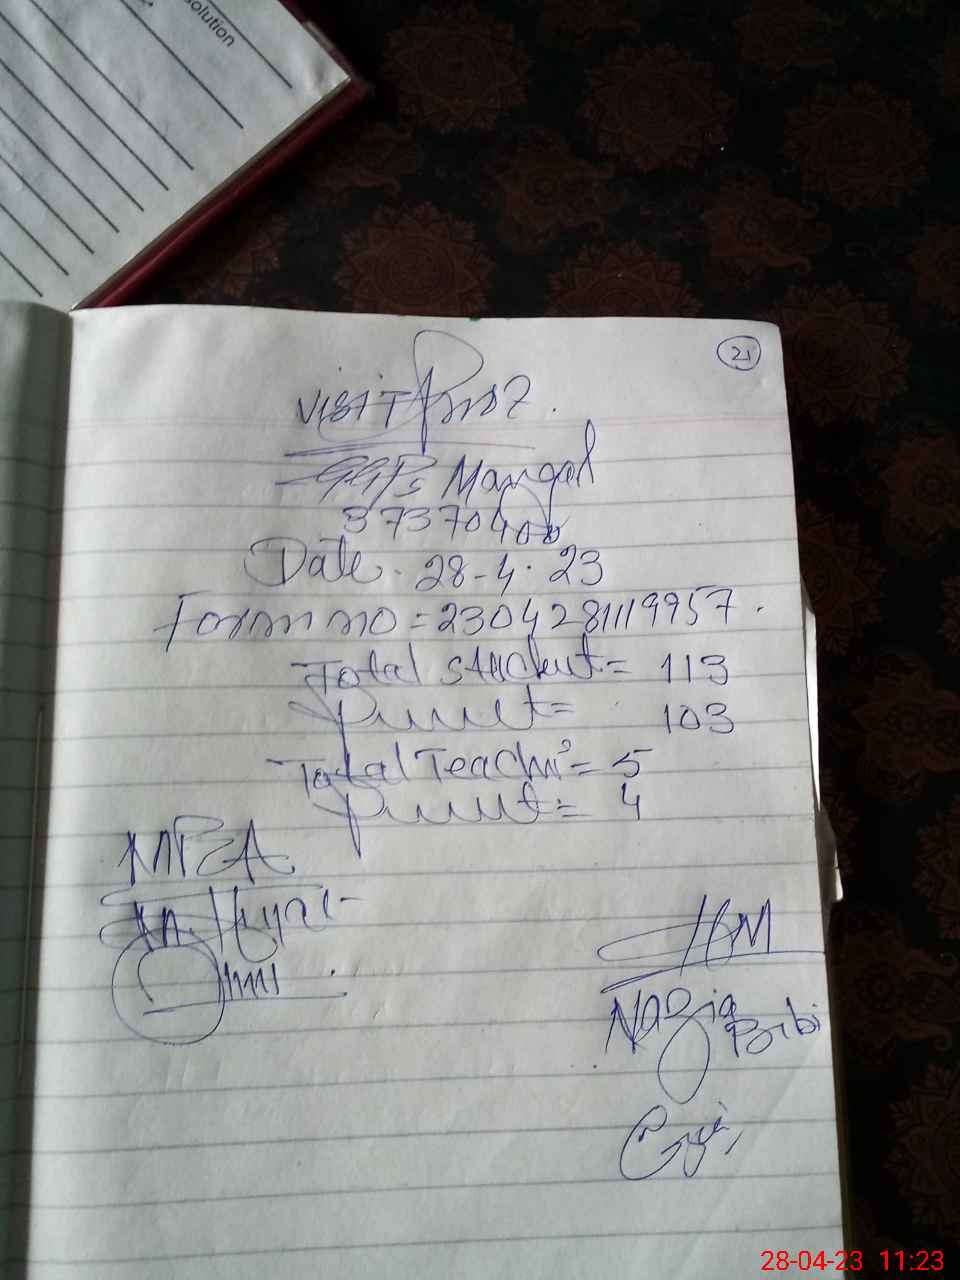 solution
21
Visit
GGPS Mangal
37370400
Date. 28-4-23
Form no = 2304281119957.
Total Student = 113
Present = 103
Total Teacher = 5
Present = 4
HM
Nazia
Bibi
28-04-23 11:23